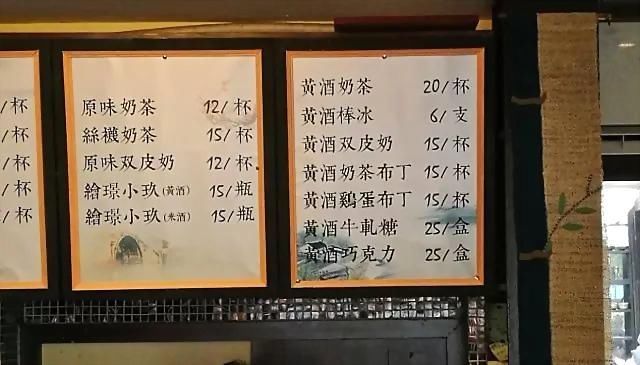 /杯
/杯
/杯
/杯
/杯
原味奶茶 12/杯
絲襪奶茶 15/杯
原味双皮奶 12/杯
繪璟小玖(黃酒) 15/瓶
繪璟小玖(米酒) 15/瓶
黃酒奶茶 20/杯
黃酒棒冰 6/支
黃酒双皮奶 15/杯
黃酒奶茶布丁 15/杯
黃酒鷄蛋布丁 15/杯
黃酒牛軋糖 25/盒
黃酒巧克力 25/盒